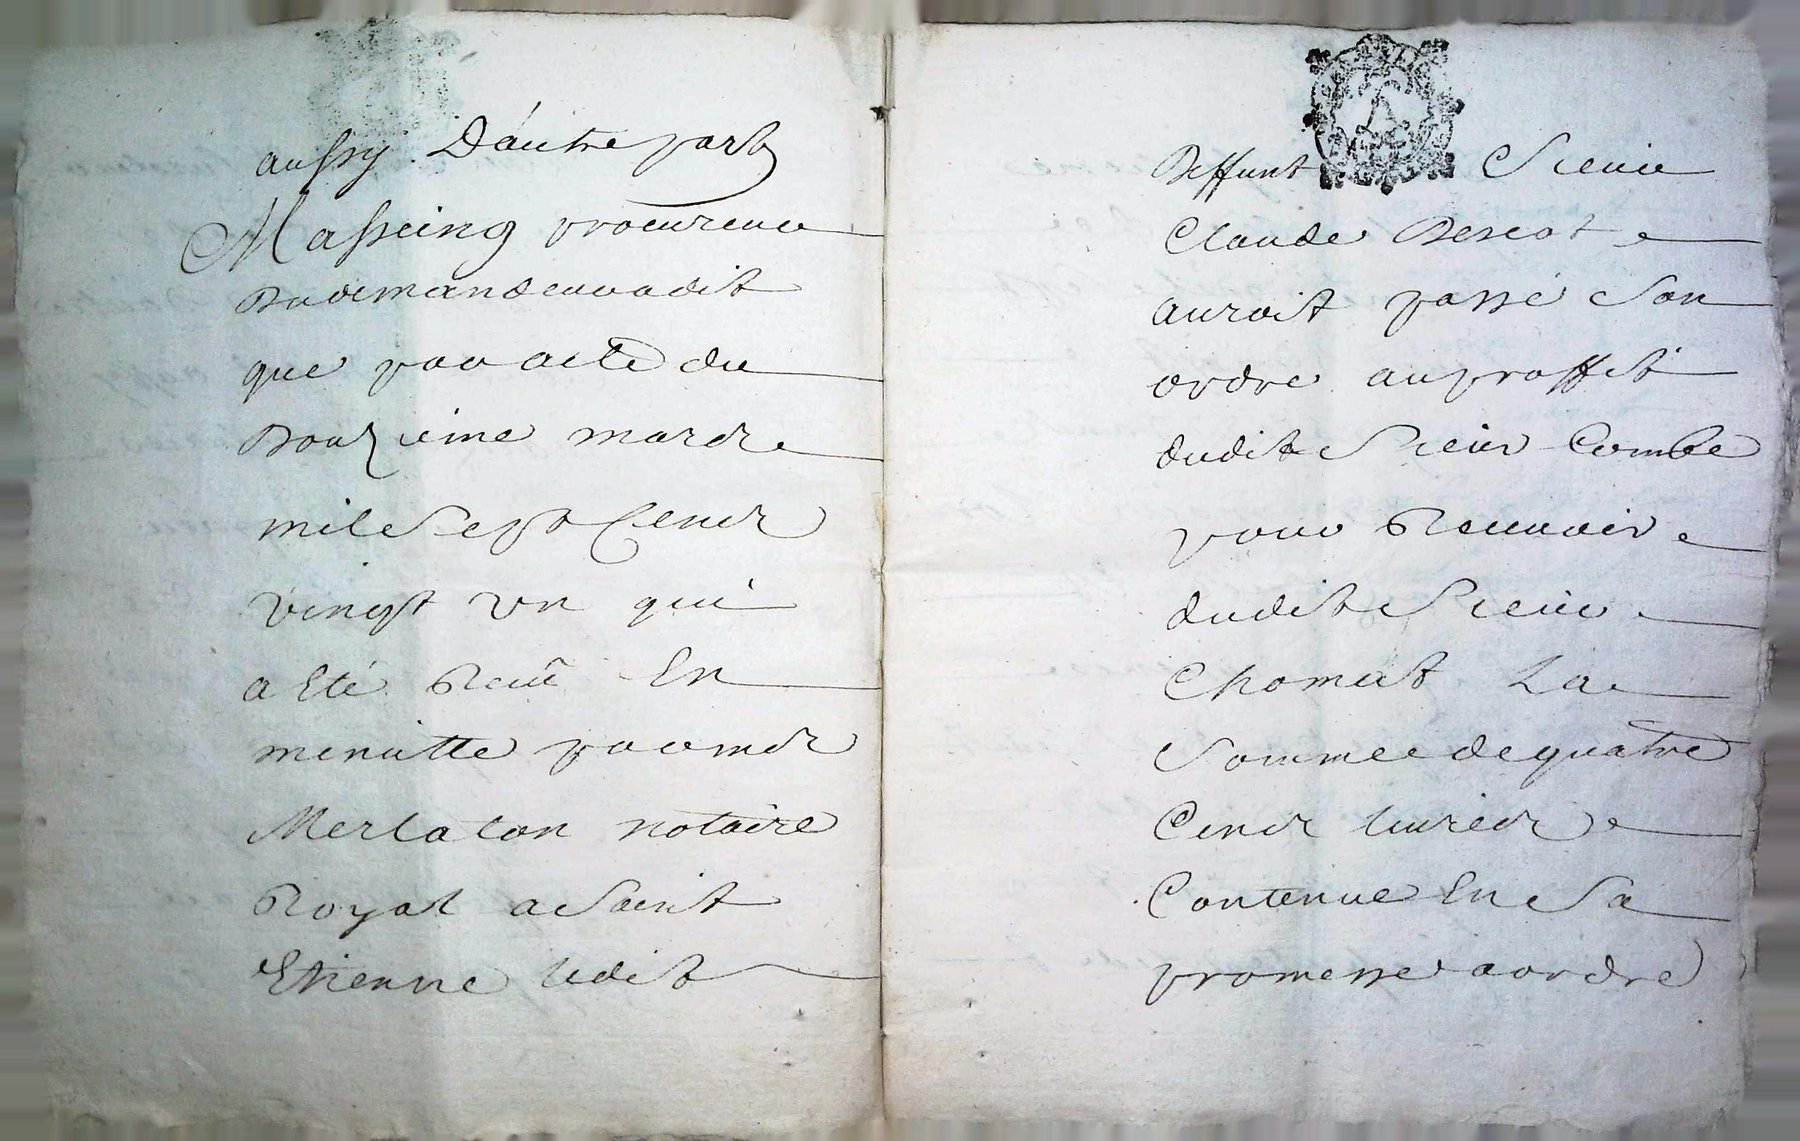 aussy. D'autre part
Masseing procureur
Du demandeur a dit
que par acte du
Douzieme mars
mil Sept Cens
vingt un qui
a Eté Recu En
minutte par me
Merlaton notaire
Royal a Saint
Etienne ledit
Deffunt Sieur
Claude Descot
auroit passé Son
ordre au proffit
dudit Sieur Combe
pour Recevoir
dudit Sieur
Chomat La
Somme de quatre
Cens livres
Contenue En Sa
promesse a ordre